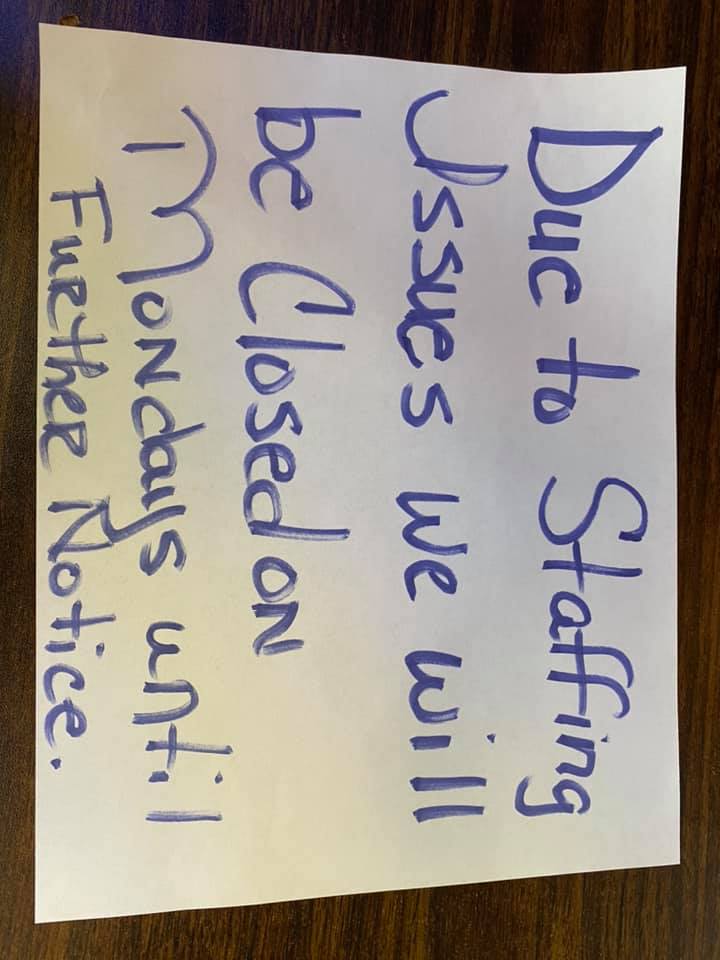 Due to Staffing
Issues we will
be Closed on
Mondays until
Further Notice.